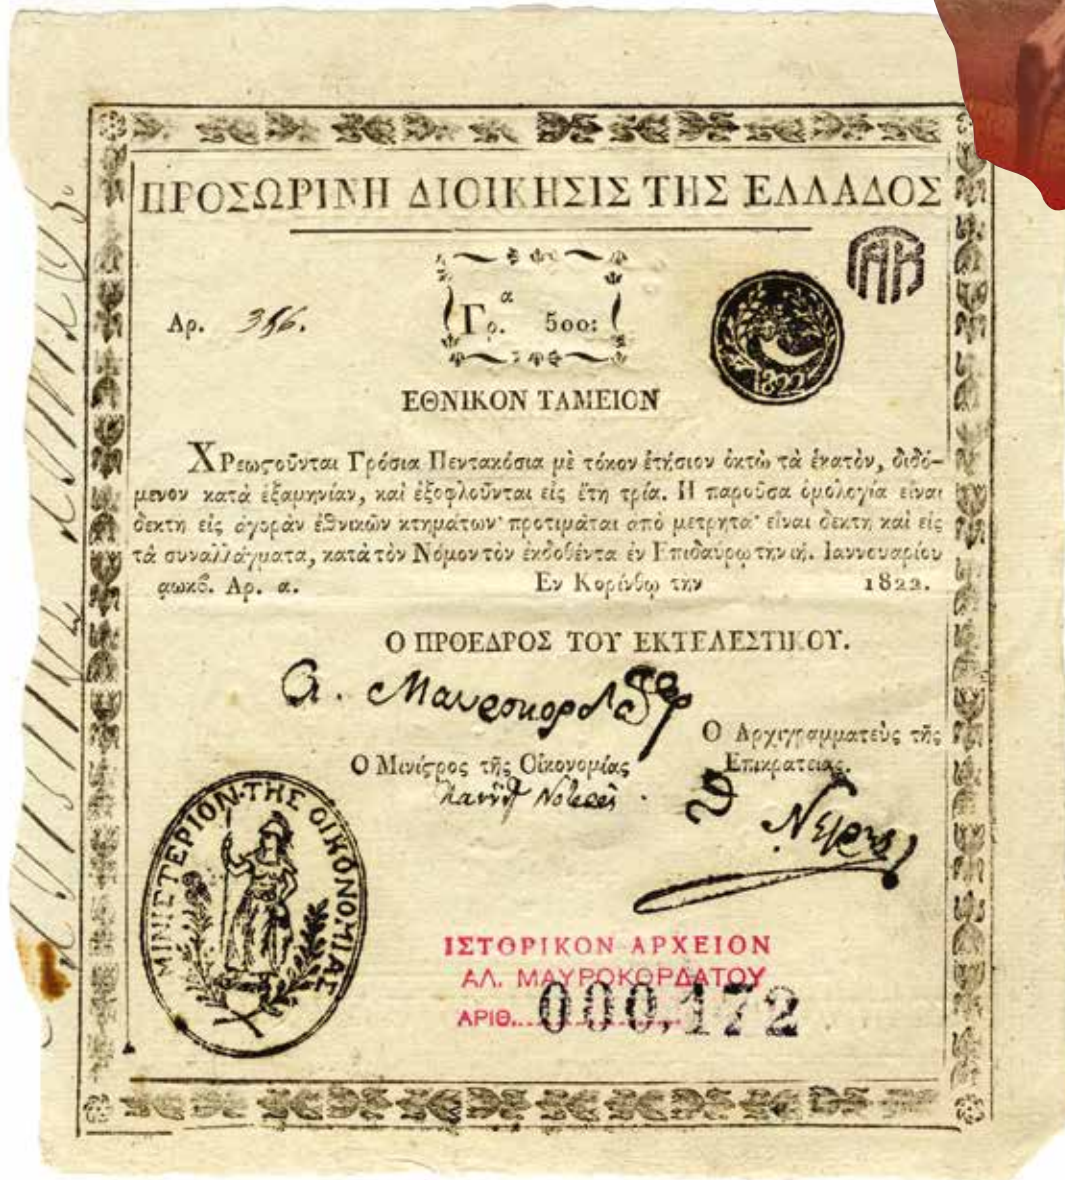 ΠΡΟΣΩΡΙΝΗ ΔΙΟΙΚΗΣΙΣ ΤΗΣ ΕΛΛΑΔΟΣ
ΓΑΚ
Αρ. 386.
Γρ.α 500:
1822
ΕΘΝΙΚΟΝ ΤΑΜΕΙΟΝ
ΧΡεωϛοῦνται Γρόσια Πεντακόσια μὲ τόκον ἐτήσιον ὀκτὼ τὰ ἑνατὸν, διδό-
μενον κατὰ ἑξαμηνίαν, καὶ ἐξοφλοῦνται εἰς ἔτη τρία. Η παροῦσα ὁμολογία εἶναι
δεκτὴ εἰς ἀγορὰν ἐθνικῶν κτημάτων· προτιμᾶται απὸ μετρητά· εἶναι δεκτὴ καὶ εἰς
τὰ συναλλάγματα, κατὰ τὸν Νόμον τὸν ἐκδοθέντα ἐν Επιδαύρῳ την ιή. Ιαννουαρίου
αωκβ. Αρ. α. Εν Κορίνθῳ την 1822.
Ο ΠΡΟΕΔΡΟΣ ΤΟΥ ΕΚΤΕΛΕΣΤΙΚΟΥ.
Α. Μαυροκορδάτος
Ο Αρχιγραμματεὺς τῆς
Επικρατείας.
Ο Μινίϛρος τῆς Οἰκονομίας
Θ Νέγρης
ΜΙΝΙΣΤΕΡΙΟΝ ΤΗΣ ΟΙΚΟΝΟΜΙΑΣ
ΙΣΤΟΡΙΚΟΝ ΑΡΧΕΙΟΝ
ΑΛ. ΜΑΥΡΟΚΟΡΔΑΤΟΥ
ΑΡΙΘ. 000,172